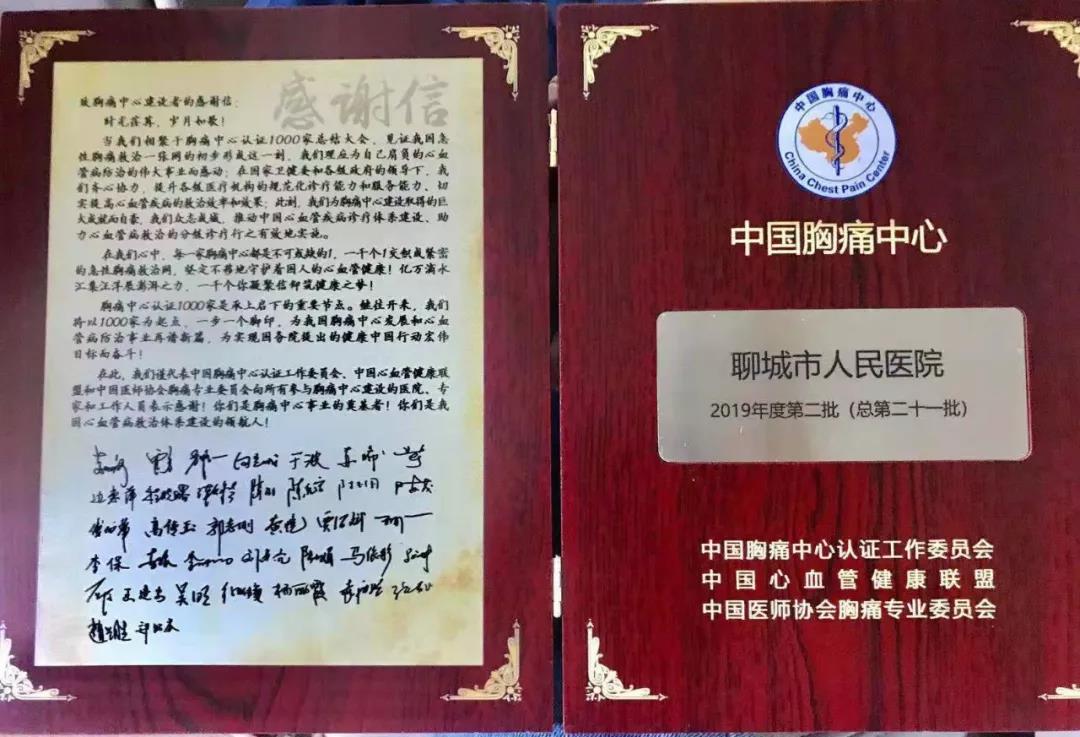 感谢信
致胸痛中心建设者的感谢信:
时光荏苒，岁月如歌！
当我们相聚于胸痛中心认证1000家总结大会，见证我国急
性胸痛救治一张网的初步形成这一刻，我们理应为自己肩负的心血
管病防治的伟大事业而感动；在国家卫健委和各级政府的领导下，我
们齐心协力，提升各级医疗机构的规范化诊疗能力和服务能力、切
实提高心血管疾病的救治效率和效果；此刻，我们为胸痛中心建设取得的巨
大成就而自豪，我们众志成城，推动中国心血管疾病诊疗体系建设、助
力心血管病救治的分级诊疗行之有效地实施。
在我们心中，每一家胸痛中心都是不可或缺的1，一千个1交织成紧密
的急性胸痛救治网，坚定不移地守护着国人的心血管健康！亿万滴水
汇集汪洋展澎湃之力，一千个你凝聚信仰筑健康之梦！
胸痛中心认证1000家是承上启下的重要节点。继往开来，我们
将以1000家为起点，一步一个脚印，为我国胸痛中心发展和心血
管病防治事业再谱新篇，为实现国务院提出的健康中国行动宏伟
目标而奋斗！
在此，我们谨代表中国胸痛中心认证工作委员会、中国心血管健康联
盟和中国医师协会胸痛专业委员会向所有参与胸痛中心建设的医院、专
家和工作人员表示感谢！你们是胸痛中心事业的奠基者！你们是我
国心血管病救治体系建设的领航人！
于波
高传玉 郭志刚
李保
马依彤
吴明 杨丽霞
中国胸痛中心
China Chest Pain Center
中国胸痛中心
聊城市人民医院
2019年度第二批（总第二十一批）
中国胸痛中心认证工作委员会
中国心血管健康联盟
中国医师协会胸痛专业委员会